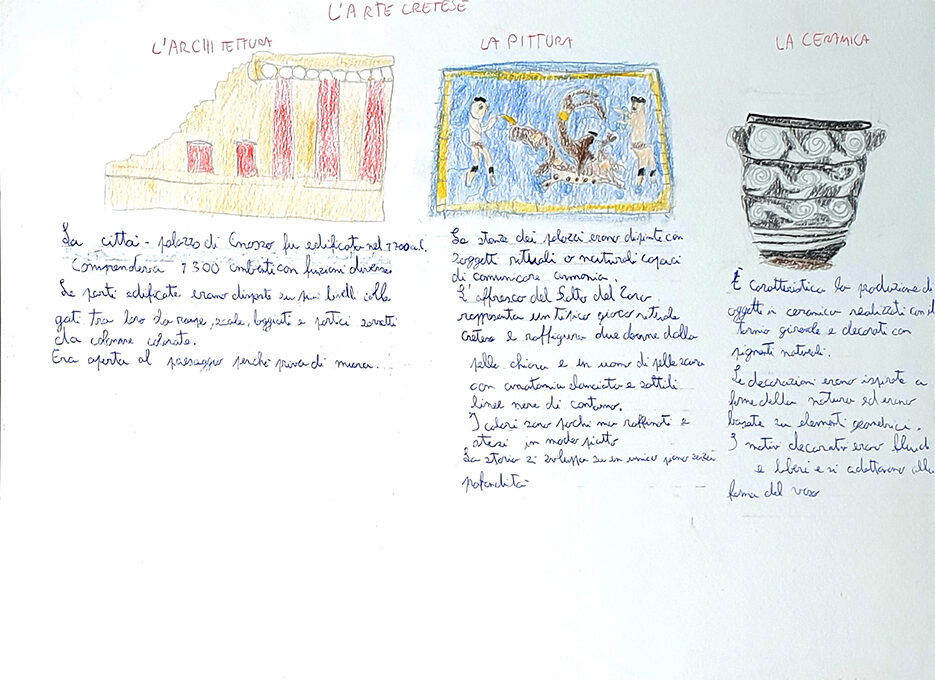 L'ARTE CRETESE
L'ARCHITETTURA
La città - palazzo di Cnosso fu edificata nel 1700 a.C.
Comprendeva 1300 ambienti con funzioni diverse
Le parti edificate erano disposte su più livelli colle
gati tra loro da rampe, scale, loggiati e portici sorretti
da colonne colorate.
Era aperta al paesaggio perchè priva di mura.
LA PITTURA
Le stanze dei palazzi erano dipinte con
soggetti rituali o naturali capaci
di comunicare armonia.
L'affresco del Salto del Toro
rappresenta un tipico gioco rituale
cretese e raffigura due donne dalla
pelle chiara e un uomo di pelle scura
con anatomia slanciata e sottili
linee nere di contorno.
I colori sono pochi ma raffinati e
stesi in modo piatto
La storia si sviluppa su un unico piano senza
profondità
LA CERAMICA
È caratteristica la produzione di
oggetti in ceramica realizzati con il
tornio girevole e decorati con
pigmenti naturali.
Le decorazioni erano ispirate a
forme della natura ed erano
basate su elementi geometrici.
I motivi decorativi erano fluidi
e liberi e si adattavano alla
forma del vaso